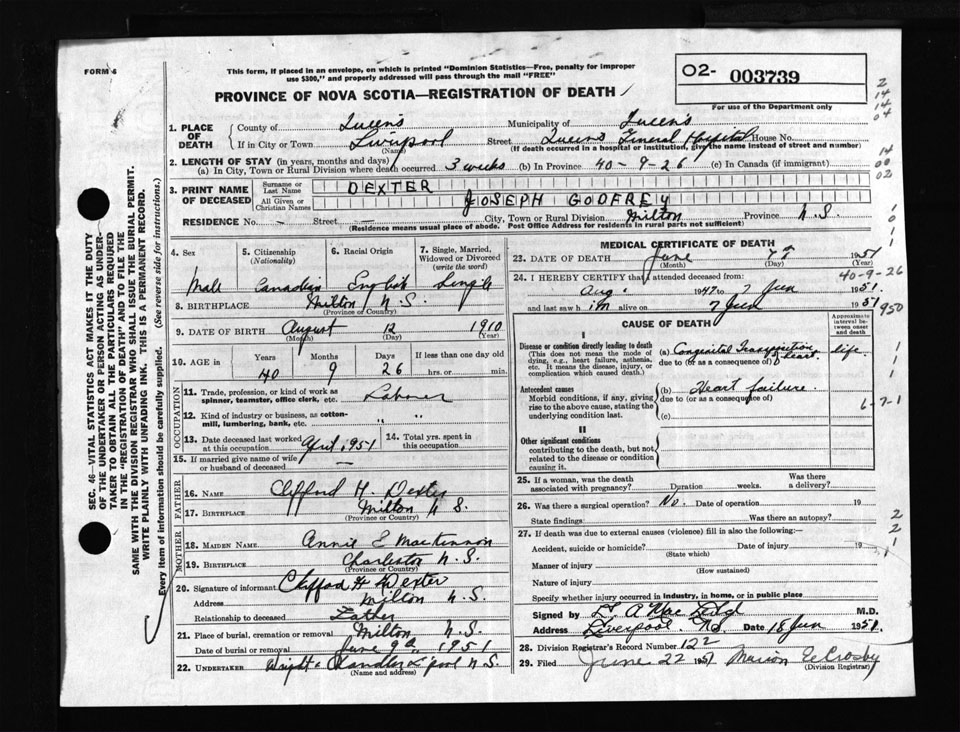 FORM 6
This form, if placed in an envelope, on which is printed "Dominion Statistics—Free, penalty for improper
use $300," and properly addressed will pass through the mail "FREE"
PROVINCE OF NOVA SCOTIA—REGISTRATION OF DEATH
02- 003739
For use of the Department only
2
14
14
04
14
00
02
1. PLACE OF DEATH
County of Queens Municipality of Queens
If in City or Town Liverpool (Name) Street Queens General Hospital House No.
(If death occurred in a hospital or institution, give the name instead of street and number)
2. LENGTH OF STAY (in years, months and days)
(a) In City, Town or Rural Division where death occurred 3 weeks (b) In Province 40-9-26 (c) In Canada (if immigrant)
3. PRINT NAME OF DECEASED
Surname or Last Name DEXTER
All Given or Christian Names JOSEPH GODFREY
RESIDENCE No. — Street — City, Town or Rural Division Milton Province N.S.
(Residence means usual place of abode. Post Office Address for residents in rural parts not sufficient)
4. Sex
Male
5. Citizenship (Nationality)
Canadian
6. Racial Origin
English
7. Single, Married, Widowed or Divorced (write the word)
Single
8. BIRTHPLACE Milton N.S.
(Province or Country)
9. DATE OF BIRTH August 12 1910
(Month) (Day) (Year)
10. AGE in Years Months Days If less than one day old
40 9 26 hrs. or min.
OCCUPATION
11. Trade, profession, or kind of work as spinner, teamster, office clerk, etc. Laborer
12. Kind of industry or business, as cotton-mill, lumbering, bank, etc. " "
13. Date deceased last worked at this occupation April, 951
14. Total yrs. spent in this occupation
15. If married give name of wife or husband of deceased —
FATHER
16. NAME Clifford H. Dexter
17. BIRTHPLACE Milton N S.
(Province or Country)
MOTHER
18. MAIDEN NAME Annie E MacKinnon
19. BIRTHPLACE Charleston N.S.
(Province or Country)
20. Signature of informant Clifford H Dexter
Address Milton N.S.
Relationship to deceased Father
21. Place of burial, cremation or removal Milton N.S.
Date of burial or removal June 9th 1951
22. UNDERTAKER Wright & Chandler L'pool N.S.
(Name and address)
MEDICAL CERTIFICATE OF DEATH
23. DATE OF DEATH June 7th 1951
(Month) (Day) (Year)
40-9-26
24. I HEREBY CERTIFY that I attended deceased from
Aug. 1947 to 7 Jun 1951.
and last saw him alive on 7 Jun 1951
950
CAUSE OF DEATH
Approximate interval between onset and death
I
Disease or condition directly leading to death
(This does not mean the mode of dying, e.g., heart failure, asthenia, etc. It means the disease, injury, or complication which caused death.)
(a) Congenital Transposition of heart. life.
due to (or as a consequence of)
Antecedent causes
Morbid conditions, if any, giving rise to the above cause, stating the underlying condition last.
(b) Heart failure.
due to (or as a consequence of)
(c)
6-7-1
II
Other significant conditions
contributing to the death, but not related to the disease or condition causing it.
25. If a woman, was the death associated with pregnancy? Duration weeks. Was there a delivery?
26. Was there a surgical operation? No. Date of operation 19
State findings: Was there an autopsy?
27. If death was due to external causes (violence) fill in also the following:
Accident, suicide or homicide? (State which) Date of injury 19
Manner of injury (How sustained)
Nature of injury
Specify whether injury occurred in industry, in home, or in public place
Signed by M.D.
Address Liverpool. N.S. Date 18 Jun 1951.
28. Division Registrar's Record Number 122
29. Filed June 22 1951 Marion E Crosby
(Division Registrar)
SEC. 46—VITAL STATISTICS ACT MAKES IT THE DUTY
OF THE UNDERTAKER OR PERSON ACTING AS UNDERTAKER
TO OBTAIN ALL THE PARTICULARS REQUIRED
IN THE "REGISTRATION OF DEATH" AND TO FILE THE
SAME WITH THE DIVISION REGISTRAR WHO SHALL ISSUE THE BURIAL PERMIT.
WRITE PLAINLY WITH UNFADING INK. THIS IS A PERMANENT RECORD.
Every item of information should be carefully supplied. (See reverse side for instructions.)